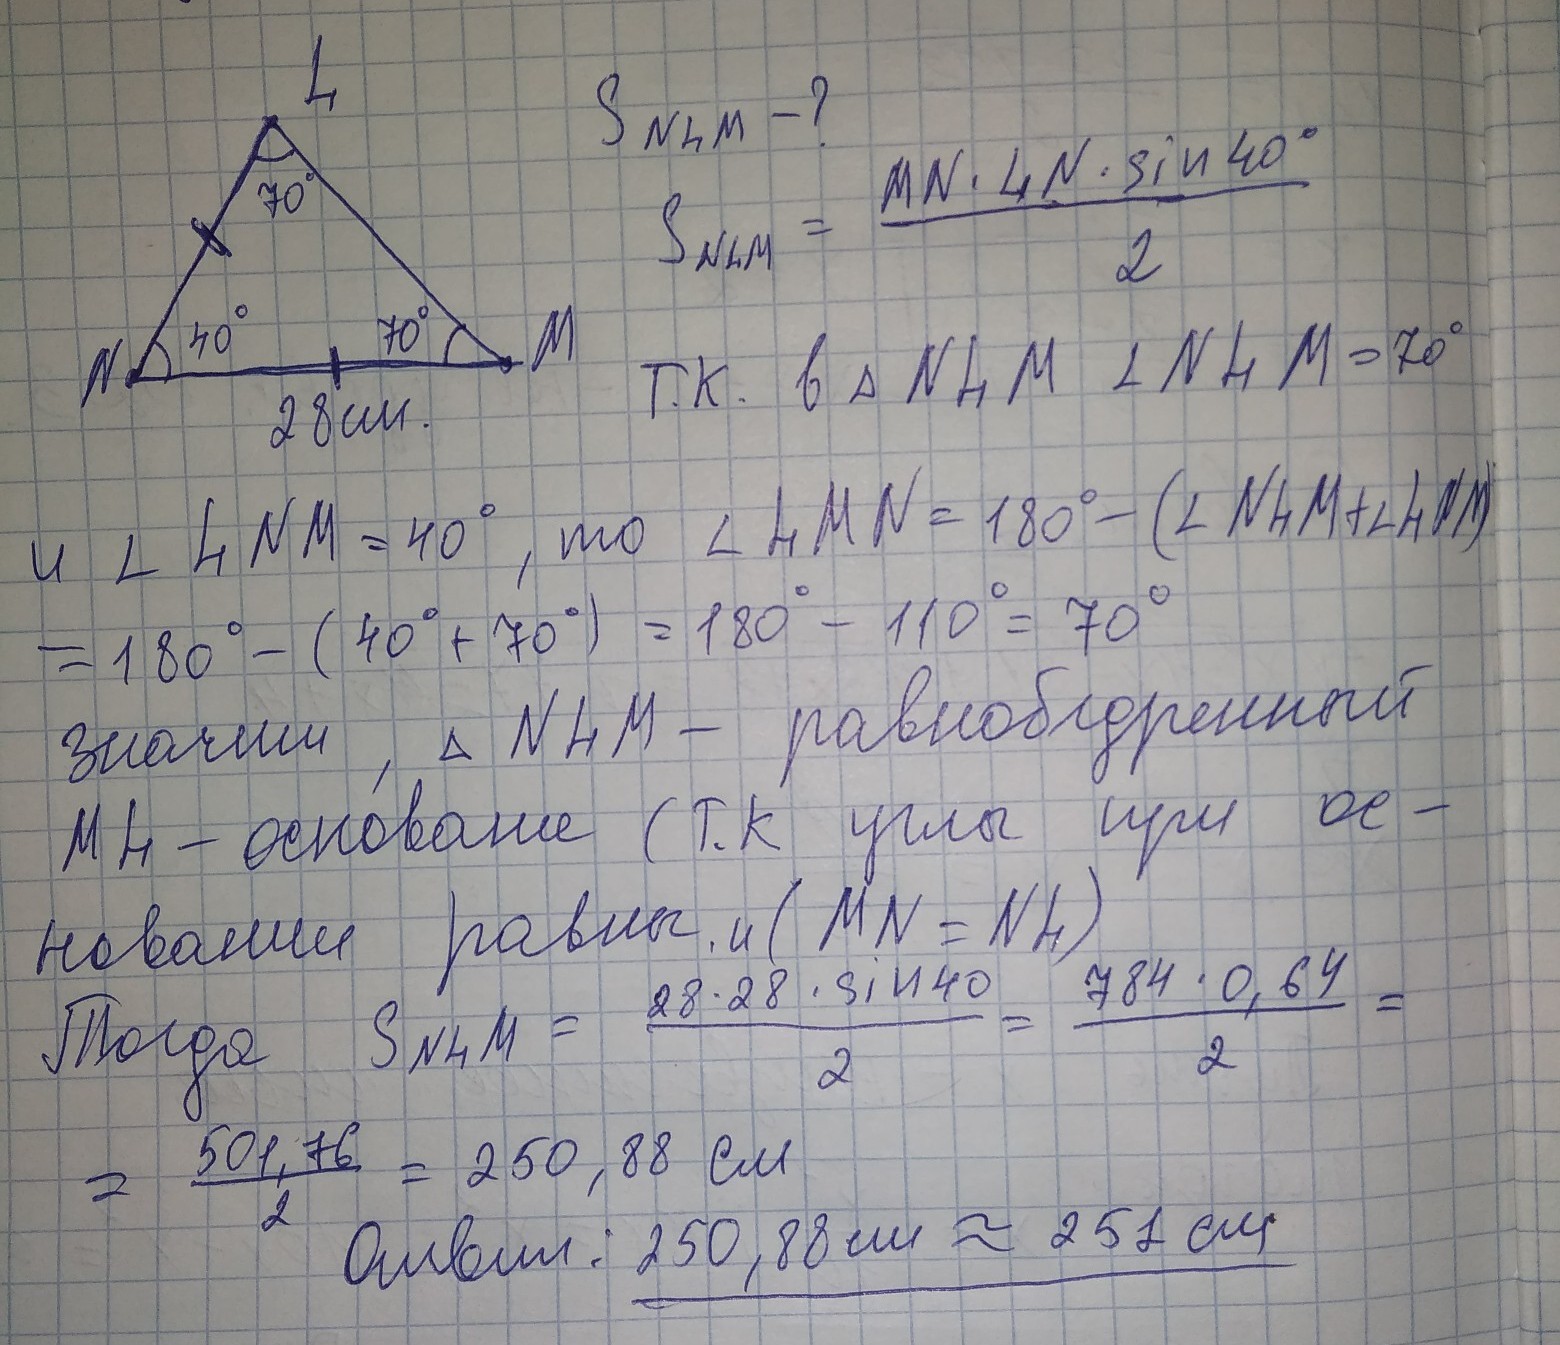 L
70°
N 40° 70° M
28 см.
S NLM - ?
S NLM = MN · LN · sin 40° / 2
Т.К. в △ NLM ∠ NLM = 70°
и ∠ LNM = 40°, то ∠ LMN = 180° - (∠ NLM + ∠ LNM)
= 180° - (40° + 70°) = 180° - 110° = 70°
значит, △ NLM - равнобедренный
ML - основание (Т.К углы при ос-
новании равны. и ( MN = NL)
Тогда S NLM = 28 · 28 · sin 40 / 2 = 784 · 0,64 / 2 =
= 501,76 / 2 = 250,88 см
Ответ: 250,88 см ≈ 251 см